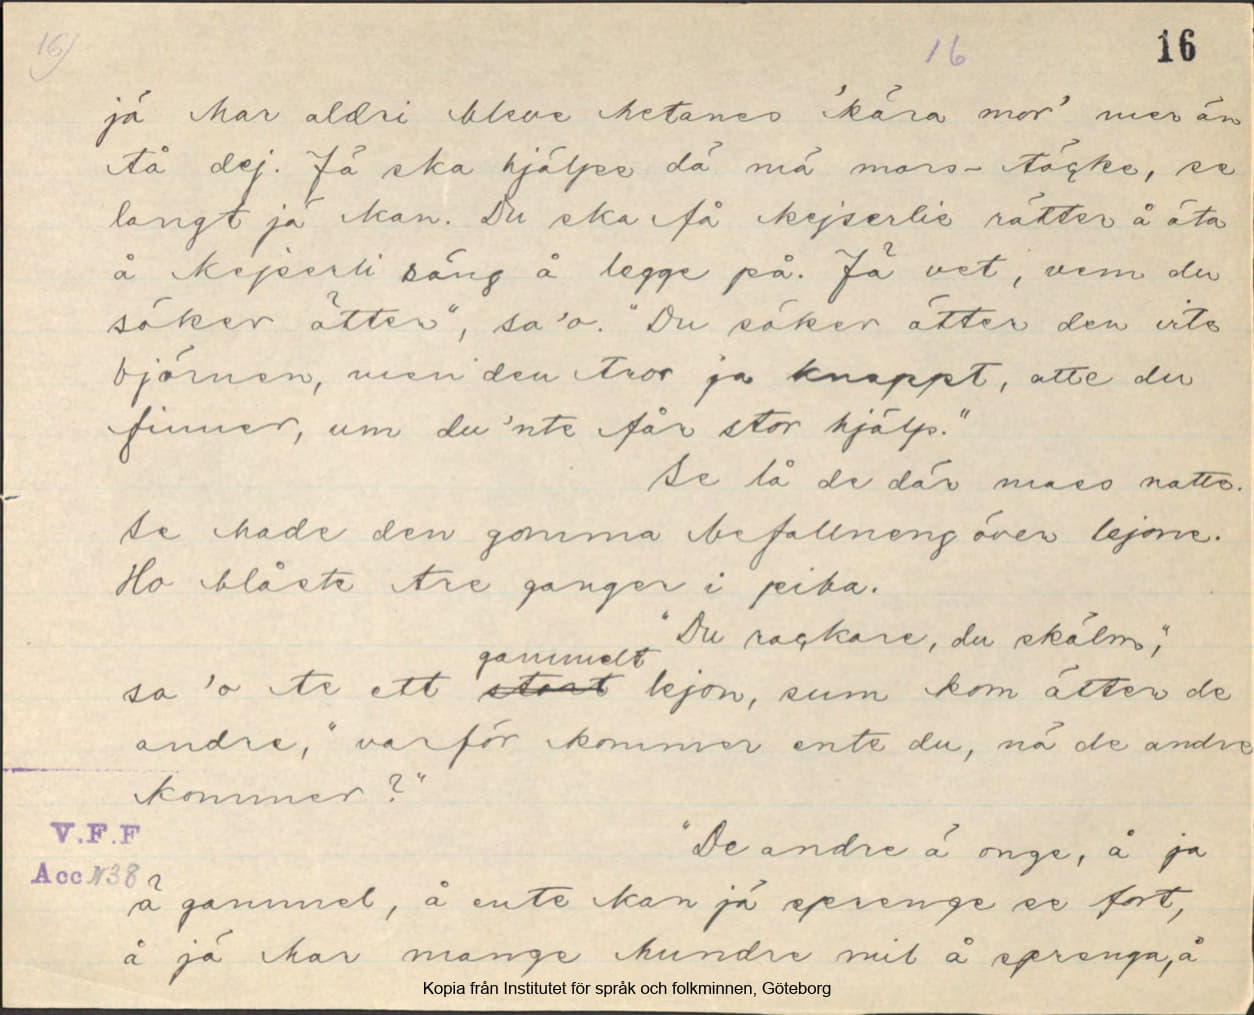 16) 16 16
já har aldri bleve hetanes 'kära mor' mer än
tå dej. Já ska hjälpe dá má mors-täcke, se
langt já kan. Du ska få kejserlie rätter å äta
å kejserli säng å legge på. Já vet, vem du
söker ätter", sa'o. "Du söker ätter den vite
björnen, men den tror ja knappt, atte du
finner, um du 'nte får stor hjälp."
Se lå de där maes natte.
Se hade den gomma befallneng över lejone.
Ho blåste tre ganger i pipa.
"Du rackare, du skälm",
gammelt
sa 'o te ett stort lejon, sum kom ätter de
andre, "varför kommer ente du, ná de andre
kommer?"
"De andre á onge, å ja
á gammel, å ente kan já sprenge se fort,
å já har mange hundre mil å sprenga, å
V.F.F
Acc N38
Kopia från Institutet för språk och folkminnen, Göteborg